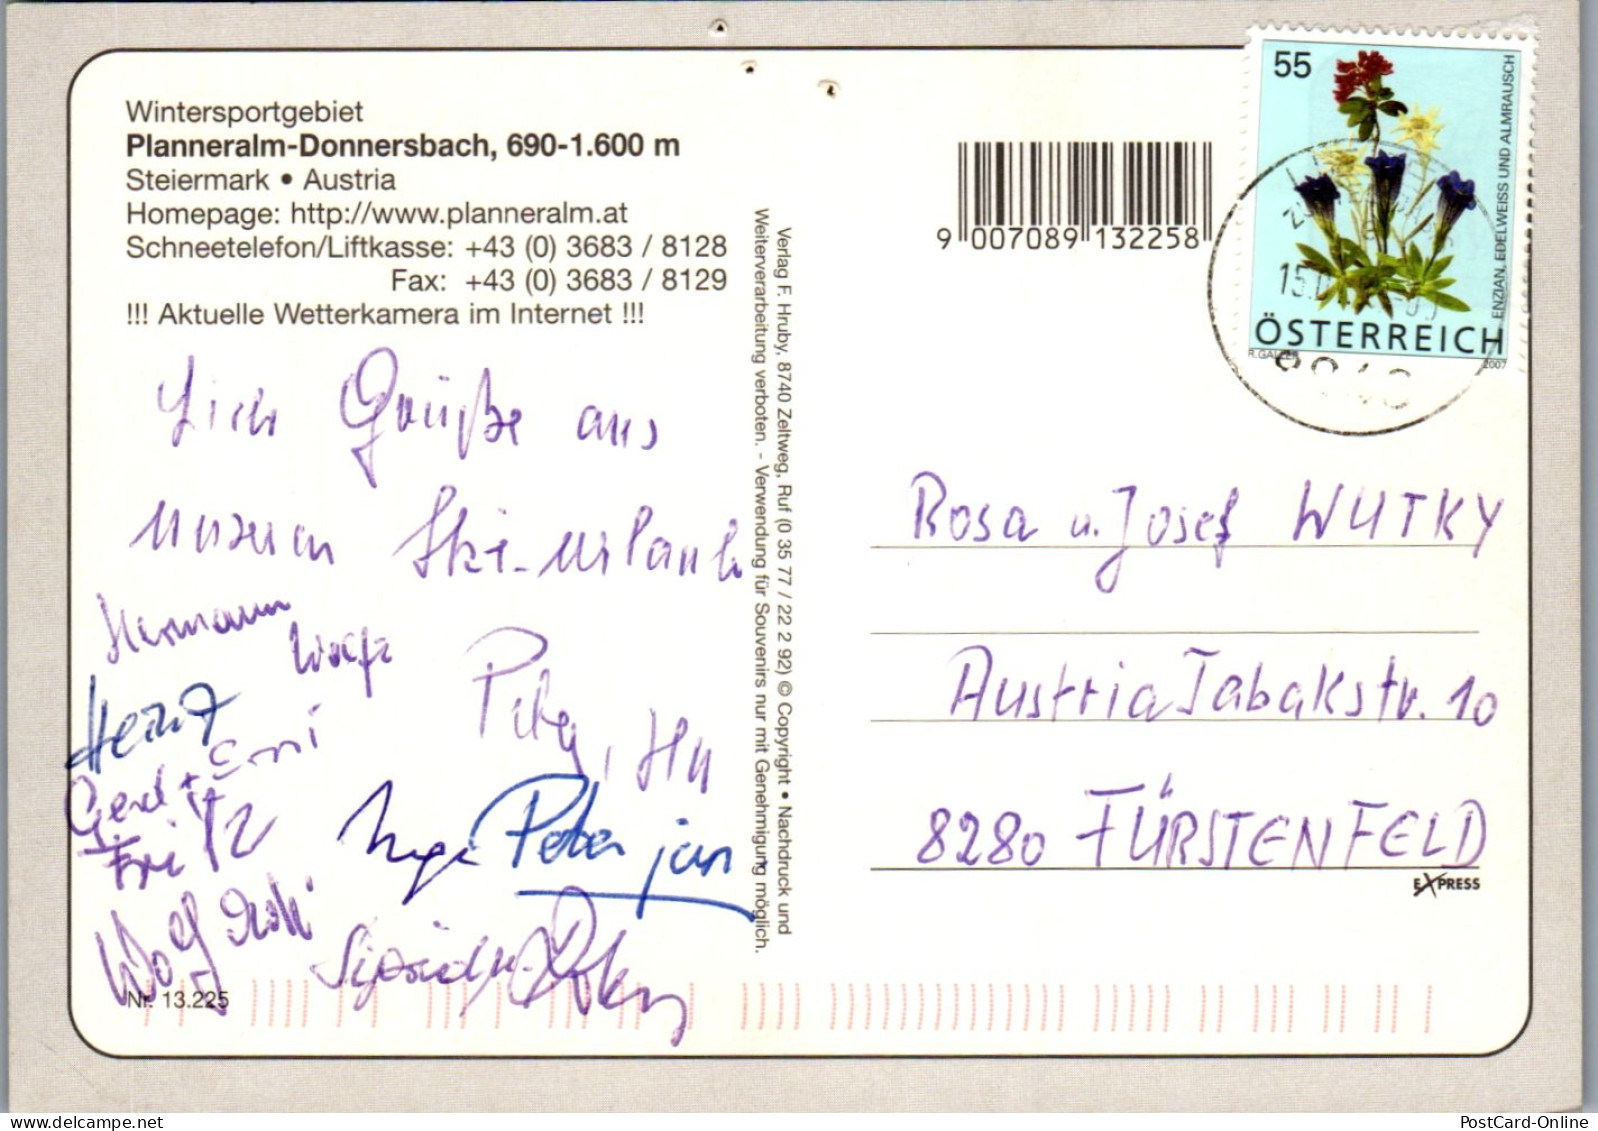 Wintersportgebiet
Planneralm-Donnersbach, 690-1.600 m
Steiermark • Austria
Homepage: http://www.planneralm.at
Schneetelefon/Liftkasse: +43 (0) 3683 / 8128
Fax: +43 (0) 3683 / 8129
!!! Aktuelle Wetterkamera im Internet !!!
Grüße aus
unseren Ski-Urlaub
Hermann
Wolfg
Heinz
Peter,
Gerd + Erni
Fritz
Inge Peter jun
Wolf
Nr. 13.225
Verlag F. Hruby, 8740 Zeltweg, Ruf (0 35 77 / 22 2 92) © Copyright • Nachdruck und
Weiterverarbeitung verboten. - Verwendung für Souvenirs nur mit Genehmigung möglich.
9 007089 132258
55
ENZIAN, EDELWEISS UND ALMRAUSCH
ÖSTERREICH
R.GALLER 2007
Rosa u. Josef WUTKY
Austria Tabakstr. 10
8280 FÜRSTENFELD
EXPRESS
PostCard-Online